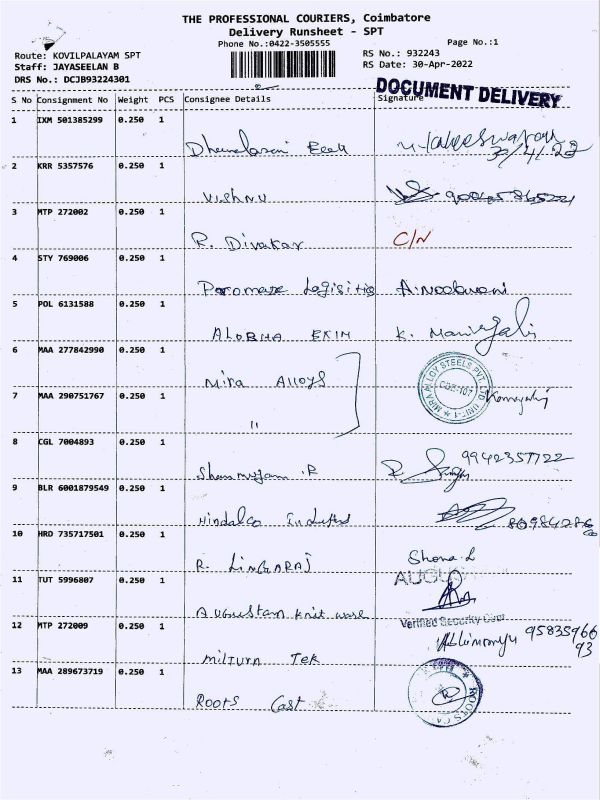 THE PROFESSIONAL COURIERS, Coimbatore
Delivery Runsheet - SPT
Phone No.:0422-3505555
Page No.:1
Route: KOVILPALAYAM SPT
RS No.: 932243
Staff: JAYASEELAN B
RS Date: 30-Apr-2022
DRS No.: DCJB93224301
DOCUMENT DELIVERY
S No Consignment No Weight PCS Consignee Details Signature
1 IXM 501385299 0.250 1
30/4/22
2 KRR 5357576 0.250 1
Vishnu
3 MTP 272002 0.250 1
R. Divakar C/N
4 STY 769006 0.250 1
5 POL 6131588 0.250 1
ALOBHA EXIM K.
6 MAA 277842990 0.250 1
Mira Alloys
MIRA ALLOY STEELS PVT. LTD. UNIT-1
CBE-107
7 MAA 290751767 0.250 1
"
8 CGL 7004893 0.250 1
9942357722
Shanmugam .P
9 BLR 6001879549 0.250 1
Hindalco
10 HRD 735717501 0.250 1
R. LINGARAJ
11 TUT 5996807 0.250 1
AUGUS
Augustan knit ware
12 MTP 272009 0.250 1
Verified Security
95835966
93
Milturn Tek
13 MAA 289673719 0.250 1
Roots Cast